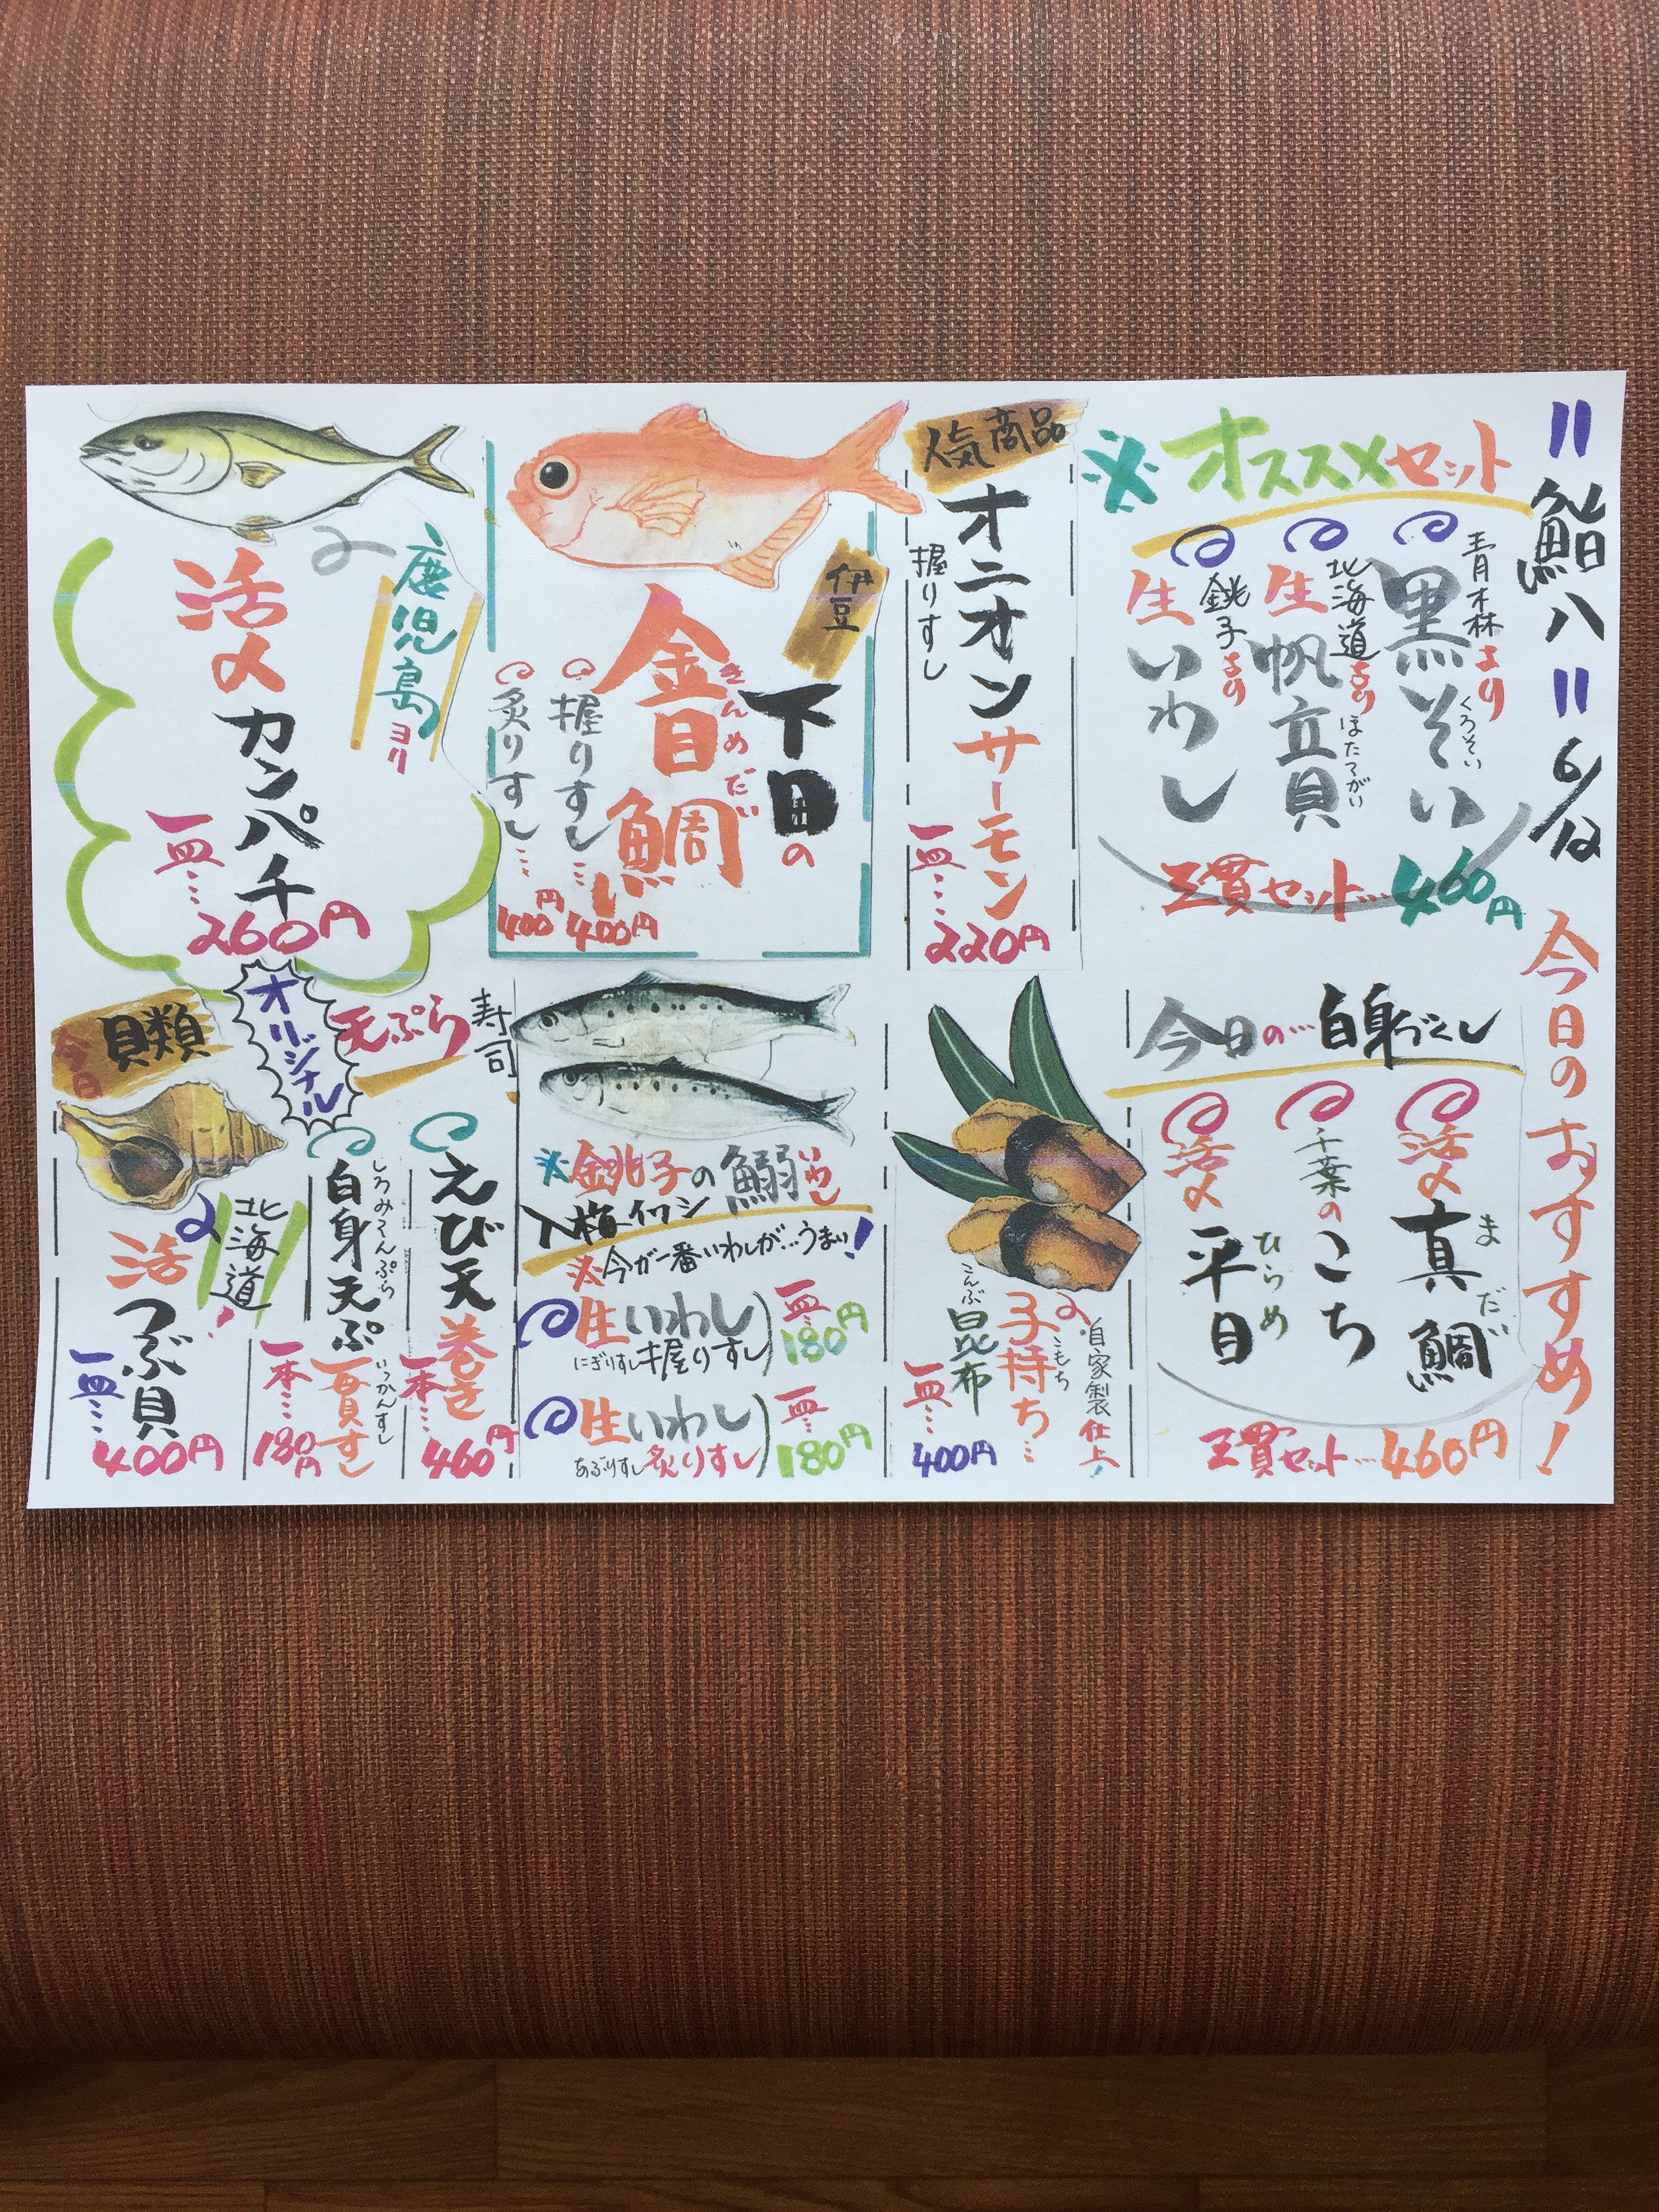 〃鮨八〃 6/12
今日のおすすめ!
※オススメセット
青森より
黒そい
くろそい
北海道より
生帆立貝
ほたてがい
銚子より
生いわし
三貫セット…460円
今日の…白身づくし
活〆真鯛
まだい
千葉のこち
活〆平目
ひらめ
三貫セット…460円
人気商品
オニオンサーモン
握りすし
一皿…220円
自家製仕上!
子持ち…
こもち
昆布
こんぶ
一皿…400円
伊豆
下田の
金目鯛
きんめだい
握りすし…400円
炙りすし…400円
※銚子の鰯
いわし
入梅イワシ
※今が一番いわしが…うまい!
生いわし
にぎりすし握りすし
一皿…180円
生いわし
あぶりすし炙りすし
一皿…180円
鹿児島ヨリ
活〆カンパチ
一皿…260円
オリジナル
天ぷら寿司
えび天巻き
一本…460円
白身天ぷら
しろみてんぷら
一貫すし
いっかんすし
一本…180円
今日
貝類
北海道!
活つぶ貝
一皿…400円